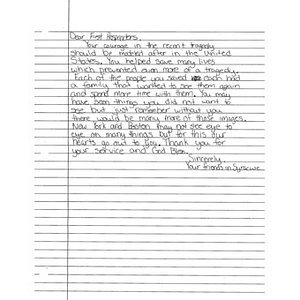 Dear First Responders,
Your courage in the recent tragedy
should be modeled after in the United
States. You helped save many lives
which prevented even more of a tragedy.
Each of the people you saved each had
a family that wanted to see them again
and spend more time with them. You may
have seen things you did not want to
see but just remember without you
there would be many more of those images.
New York and Boston may not see eye to
eye on many things but for this our
hearts go out to you. Thank you for
your service and God Bless.
Sincerely,
Your friends in Syracuse